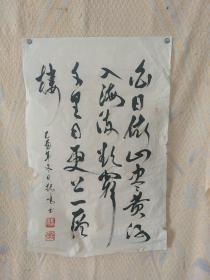 白日依山尽黄河
入海流欲穷
千里目更上一层
楼